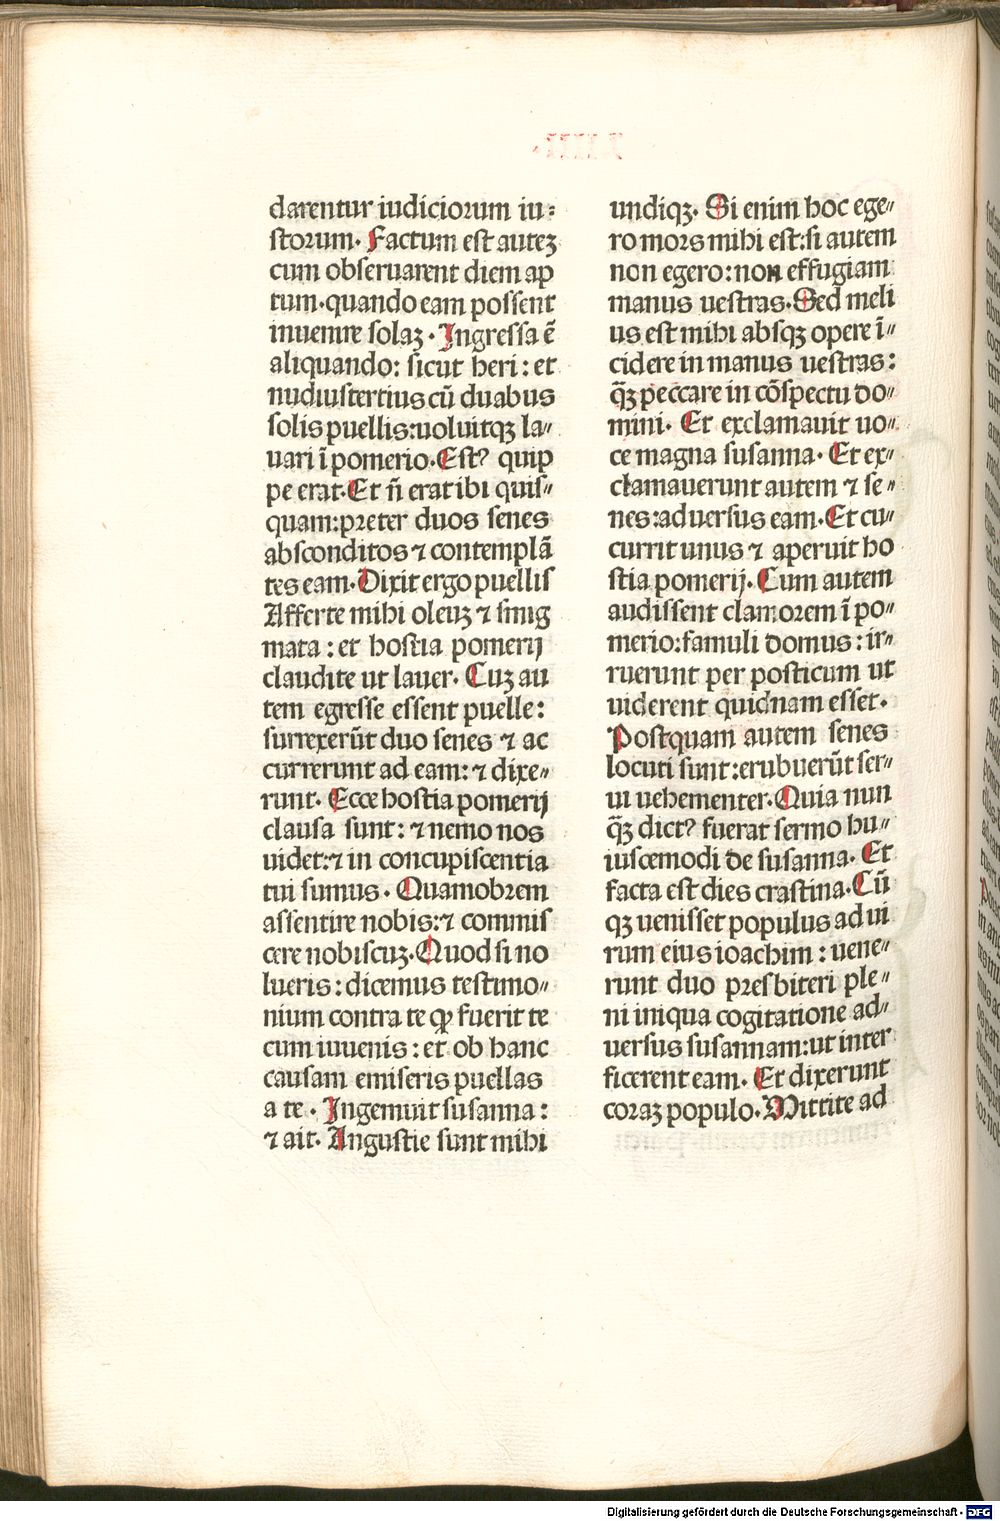 darentur iudiciorum iu⸗
storum. Factum est auteꝫ
cum obseruarent diem ap
tum.quando eam possent
inuenire solaꝫ. Ingressa ē
aliquando: sicut heri: et
nudiustertius cū duabus
solis puellis:uoluitqꝫ la〃
uari ī pomerio. Estꝰ quip
pe erat. Et n̄ erat ibi quis〃
quam:preter duos senes
absconditos ⁊ contemplā
tes eam. Dixit ergo puellis
Afferte mihi oleuꝫ ⁊ smig
mata: et hostia pomerij
claudite ut lauer. Cuꝫ au
tem egresse essent puelle:
surrexerūt duo senes ⁊ ac
currerunt ad eam: ⁊ dixe〃
runt. Ecce hostia pomerij
clausa sunt: ⁊ nemo nos
uidet:⁊ in concupiscentia
tui sumus. Quamobrem
assentire nobis:⁊ commis
cere nobiscuꝫ. Quod si no
lueris: dicemus testimo〃
nium contra te ꝙ fuerit te
cum iuuenis: et ob hanc
causam emiseris puellas
a te. Ingemuit susanna:
⁊ ait. Angustie sunt mihi
undiqꝫ. Si enim hoc ege〃
ro mors mihi est:si autem
non egero: non effugiam
manus uestras. Sed meli
us est mihi absqꝫ opere ī〃
cidere in manus uestras:
q̄ꝫ peccare in cōspectu do〃
mini. Et exclamauit uo〃
ce magna susanna. Et ex〃
clamauerunt autem ⁊ se〃
nes:aduersus eam. Et cu〃
currit unus ⁊ aperuit ho
stia pomerij. Cum autem
audissent clamorem ī po〃
merio:famuli domus: ir〃
ruerunt per posticum ut
uiderent quidnam esset.
Postquam autem senes
locuti sunt:erubuerūt ser〃
ui uehementer. Quia nun
q̄ꝫ dictꝰ fuerat sermo hu〃
iuscemodi de susanna. Et
facta est dies crastina. Cū
qꝫ uenisset populus ad ui
rum eius ioachim: uene〃
runt duo presbiteri ple〃
ni iniqua cogitatione ad〃
uersus susannam:ut inter
ficerent eam. Et dixerunt
coraꝫ populo. Mittite ad
Digitalisierung gefördert durch die Deutsche Forschungsgemeinschaft - DFG